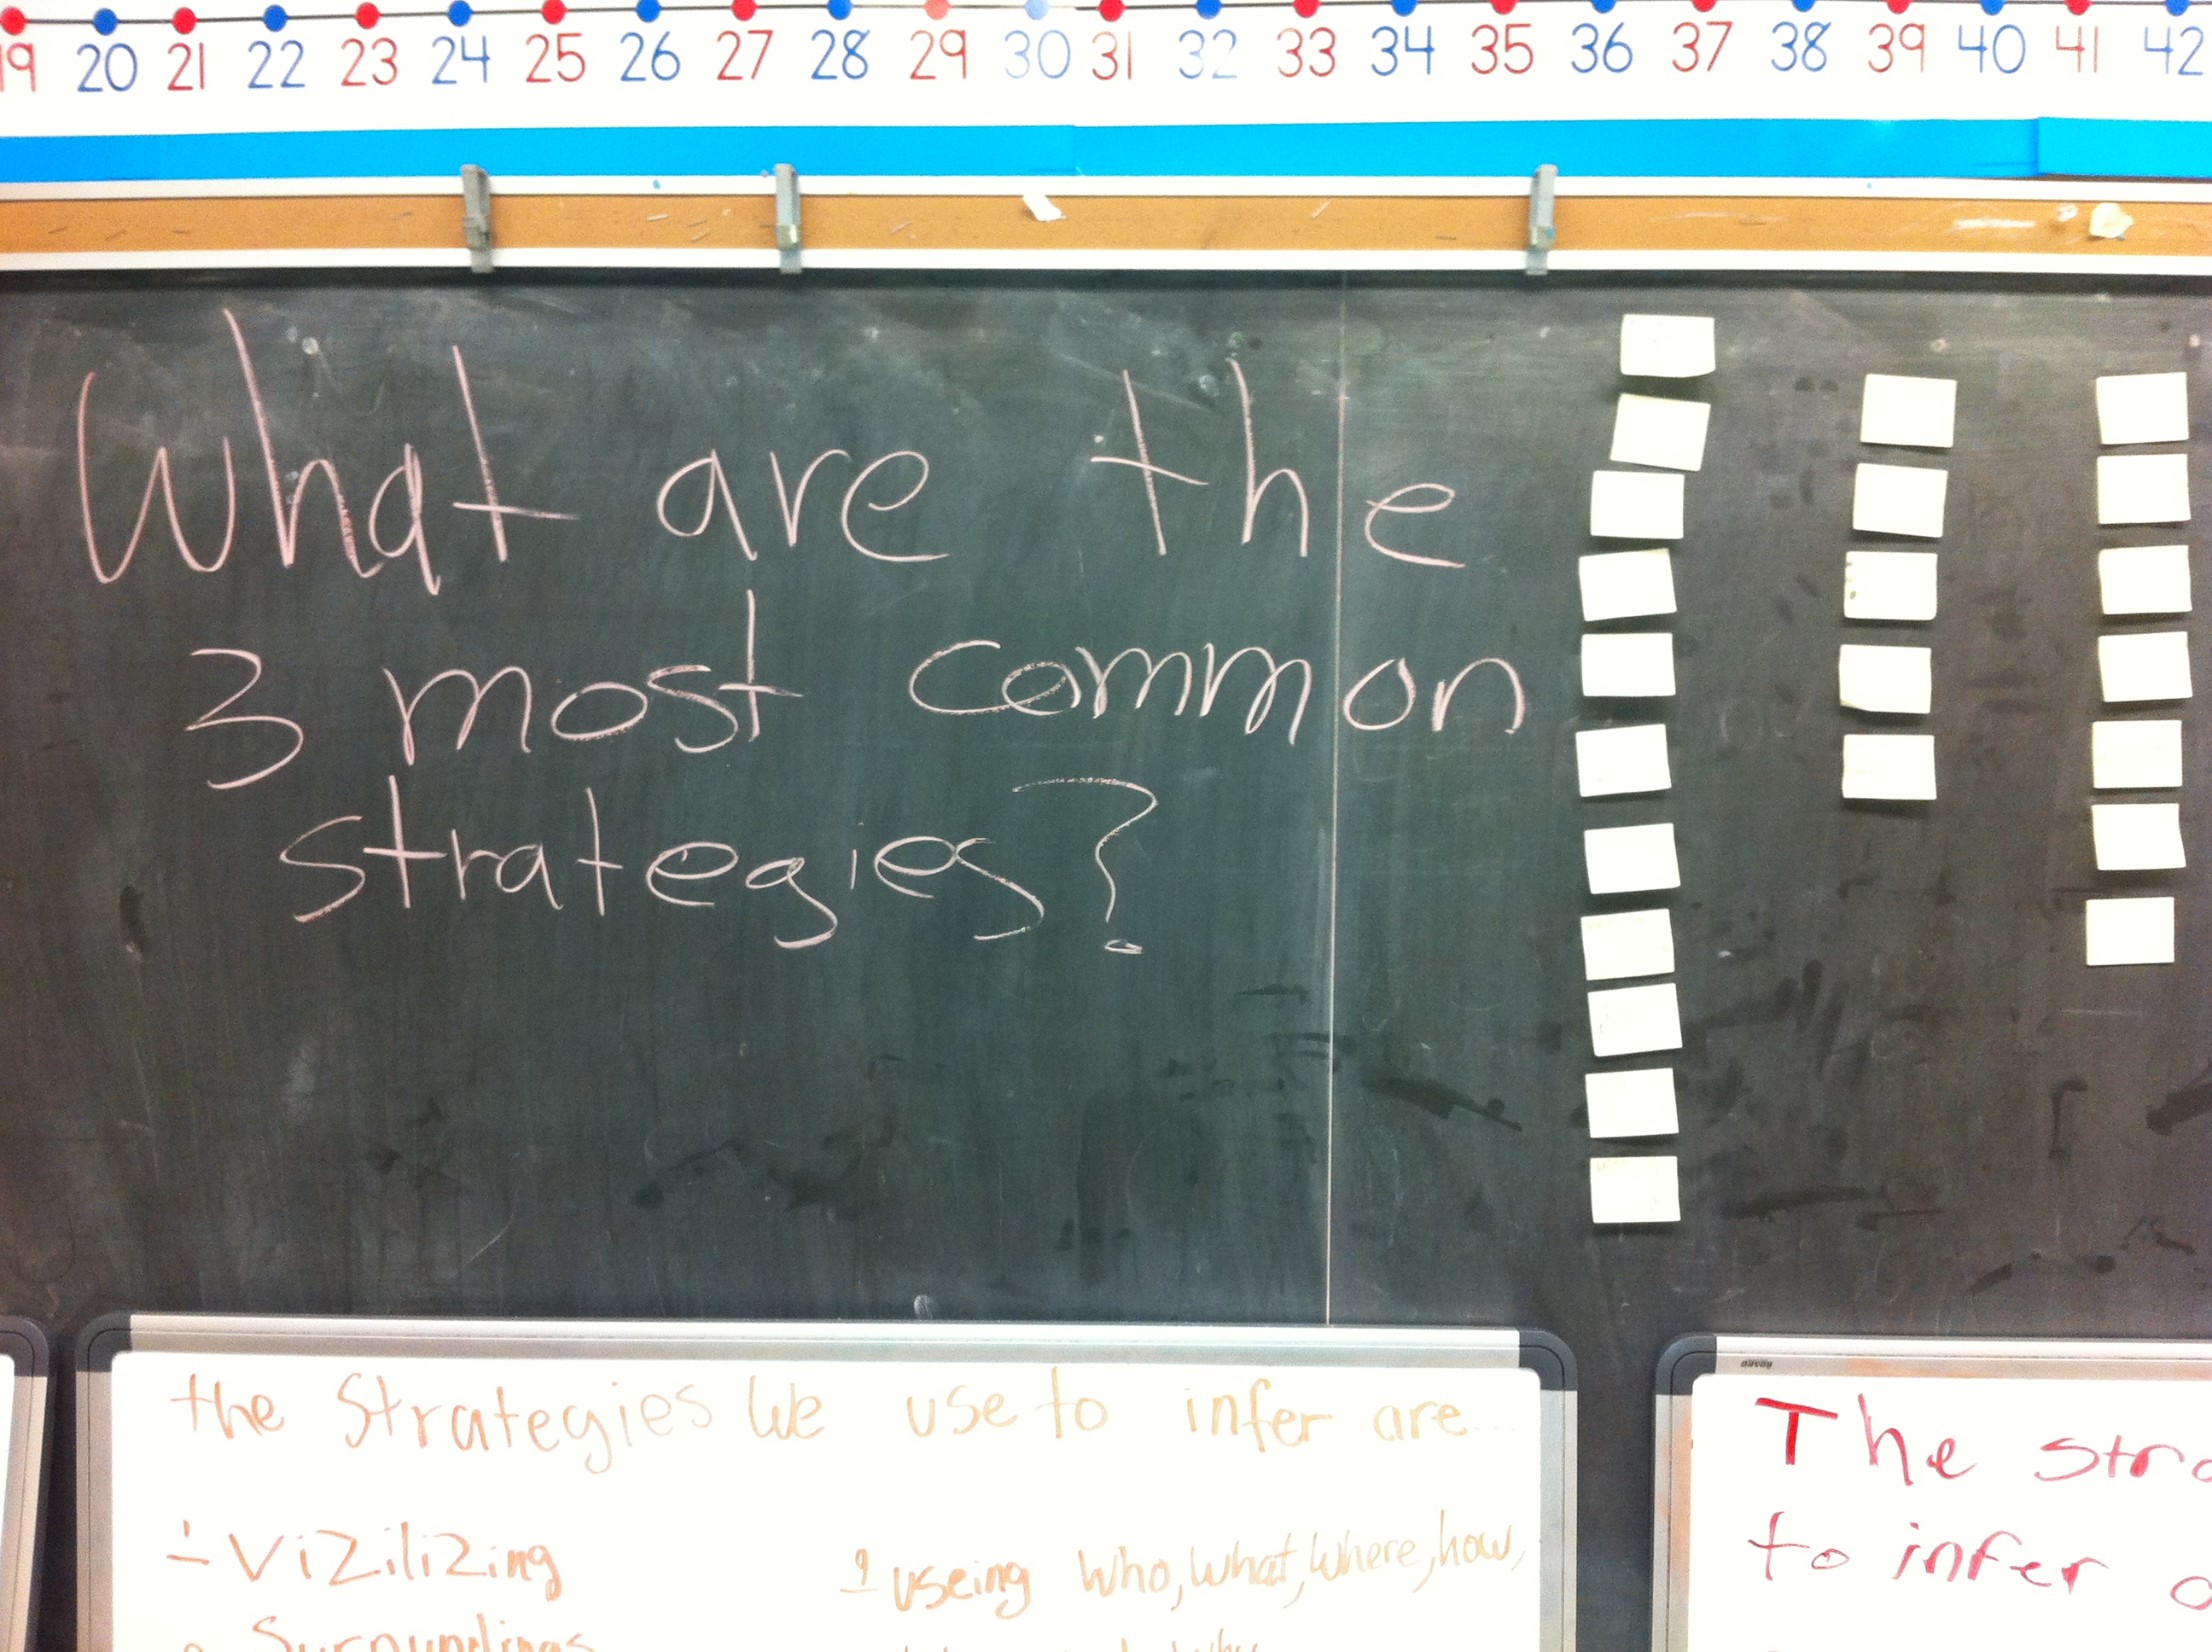 19 20 21 22 23 24 25 26 27 28 29 30 31 32 33 34 35 36 37 38 39 40 41 42
What are the
3 most common
strategies?
the Strategies We use to infer are...
- Vizilizing
useing Who, What, Where, how,
Surroundings
The stra
to infer